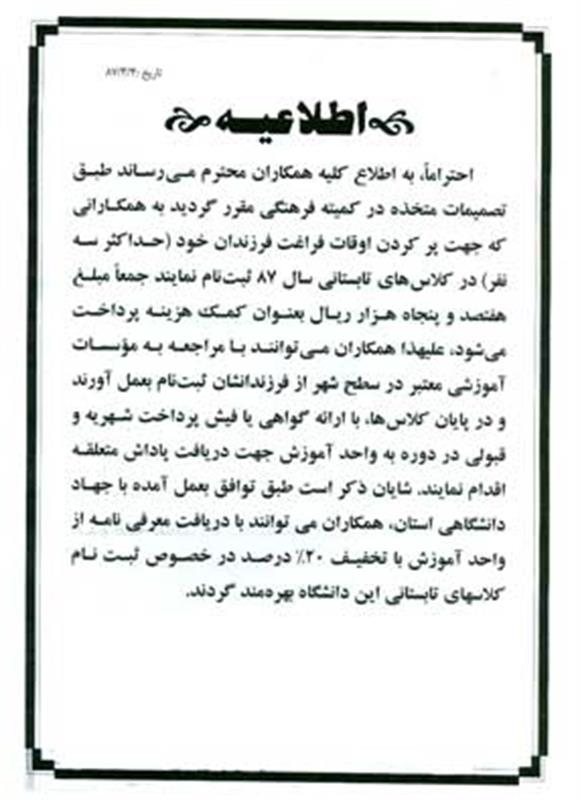 تاریخ: ۸۷/۳/۳۰
اطلاعیه
احتراماً، به اطلاع کلیه همکاران محترم می‌رساند طبق
تصمیمات متخذه در کمیته فرهنگی مقرر گردید به همکارانی
که جهت پر کردن اوقات فراغت فرزندان خود (حداکثر سه
نفر) در کلاس‌های تابستانی سال ۸۷ ثبت‌نام نمایند جمعاً مبلغ
هفتصد و پنجاه هزار ریال بعنوان کمک هزینه پرداخت
می‌شود، علیهذا همکاران می‌توانند با مراجعه به مؤسسات
آموزشی معتبر در سطح شهر از فرزندانشان ثبت‌نام بعمل آورند
و در پایان کلاس‌ها، با ارائه گواهی یا فیش پرداخت شهریه و
قبولی در دوره به واحد آموزش جهت دریافت پاداش متعلقه
اقدام نمایند. شایان ذکر است طبق توافق بعمل آمده با جهاد
دانشگاهی استان، همکاران می توانند با دریافت معرفی نامه از
واحد آموزش با تخفیف ۲۰٪ درصد در خصوص ثبت نام
کلاسهای تابستانی این دانشگاه بهره‌مند گردند.